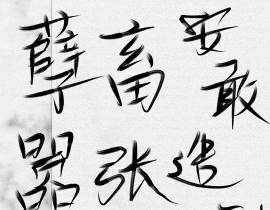 孽畜安敢
嚣张造